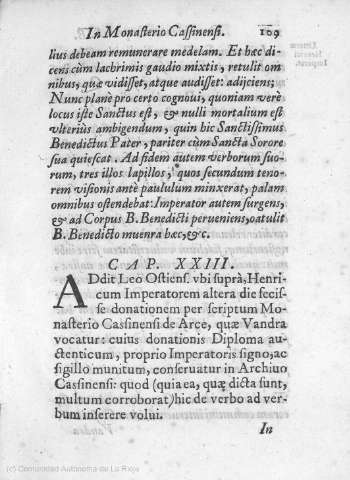 In Monasterio Cassinensi. 109
lius debeam remunerare medelam. Et hæc di-
cens cùm lachrimis gaudio mixtis, retulit om
nibus, quæ vidisset, atque audisset: adijciens;
Nunc planè pro certo cognoui, quoniam verè
locus iste Sanctus est, & nulli mortalium est
vlteriùs ambigendum, quin hic Sanctissimus
Benedictus Pater, pariter cùm Sancta Sorore
sua quiescat. Ad fidem autem verborum suo-
rum, tres illos lapillos, quos secundum teno-
rem visionis antè paululum minxerat, palam
omnibus ostendebat: Imperator autem surgens,
& ad Corpus B. Benedicti perueniens, oatulit
B. Benedicto muenra hæc, &c.
CAP. XXIII.
ADdit Leo Ostiens. vbi suprà, Henri-
cum Imperatorem altera die fecis-
se donationem per scriptum Mo-
nasterio Cassinensi de Arce, quæ Vandra
vocatur: cuius donationis Diploma au-
ctenticum, proprio Imperatoris signo, ac
sigillo munitum, conseruatur in Archiuo
Cassinensi: quod (quia ea, quæ dicta sunt,
multum corroborat) hic de verbo ad ver-
bum inserere volui.
In
(c) Comunidad Autónoma de La Rioja